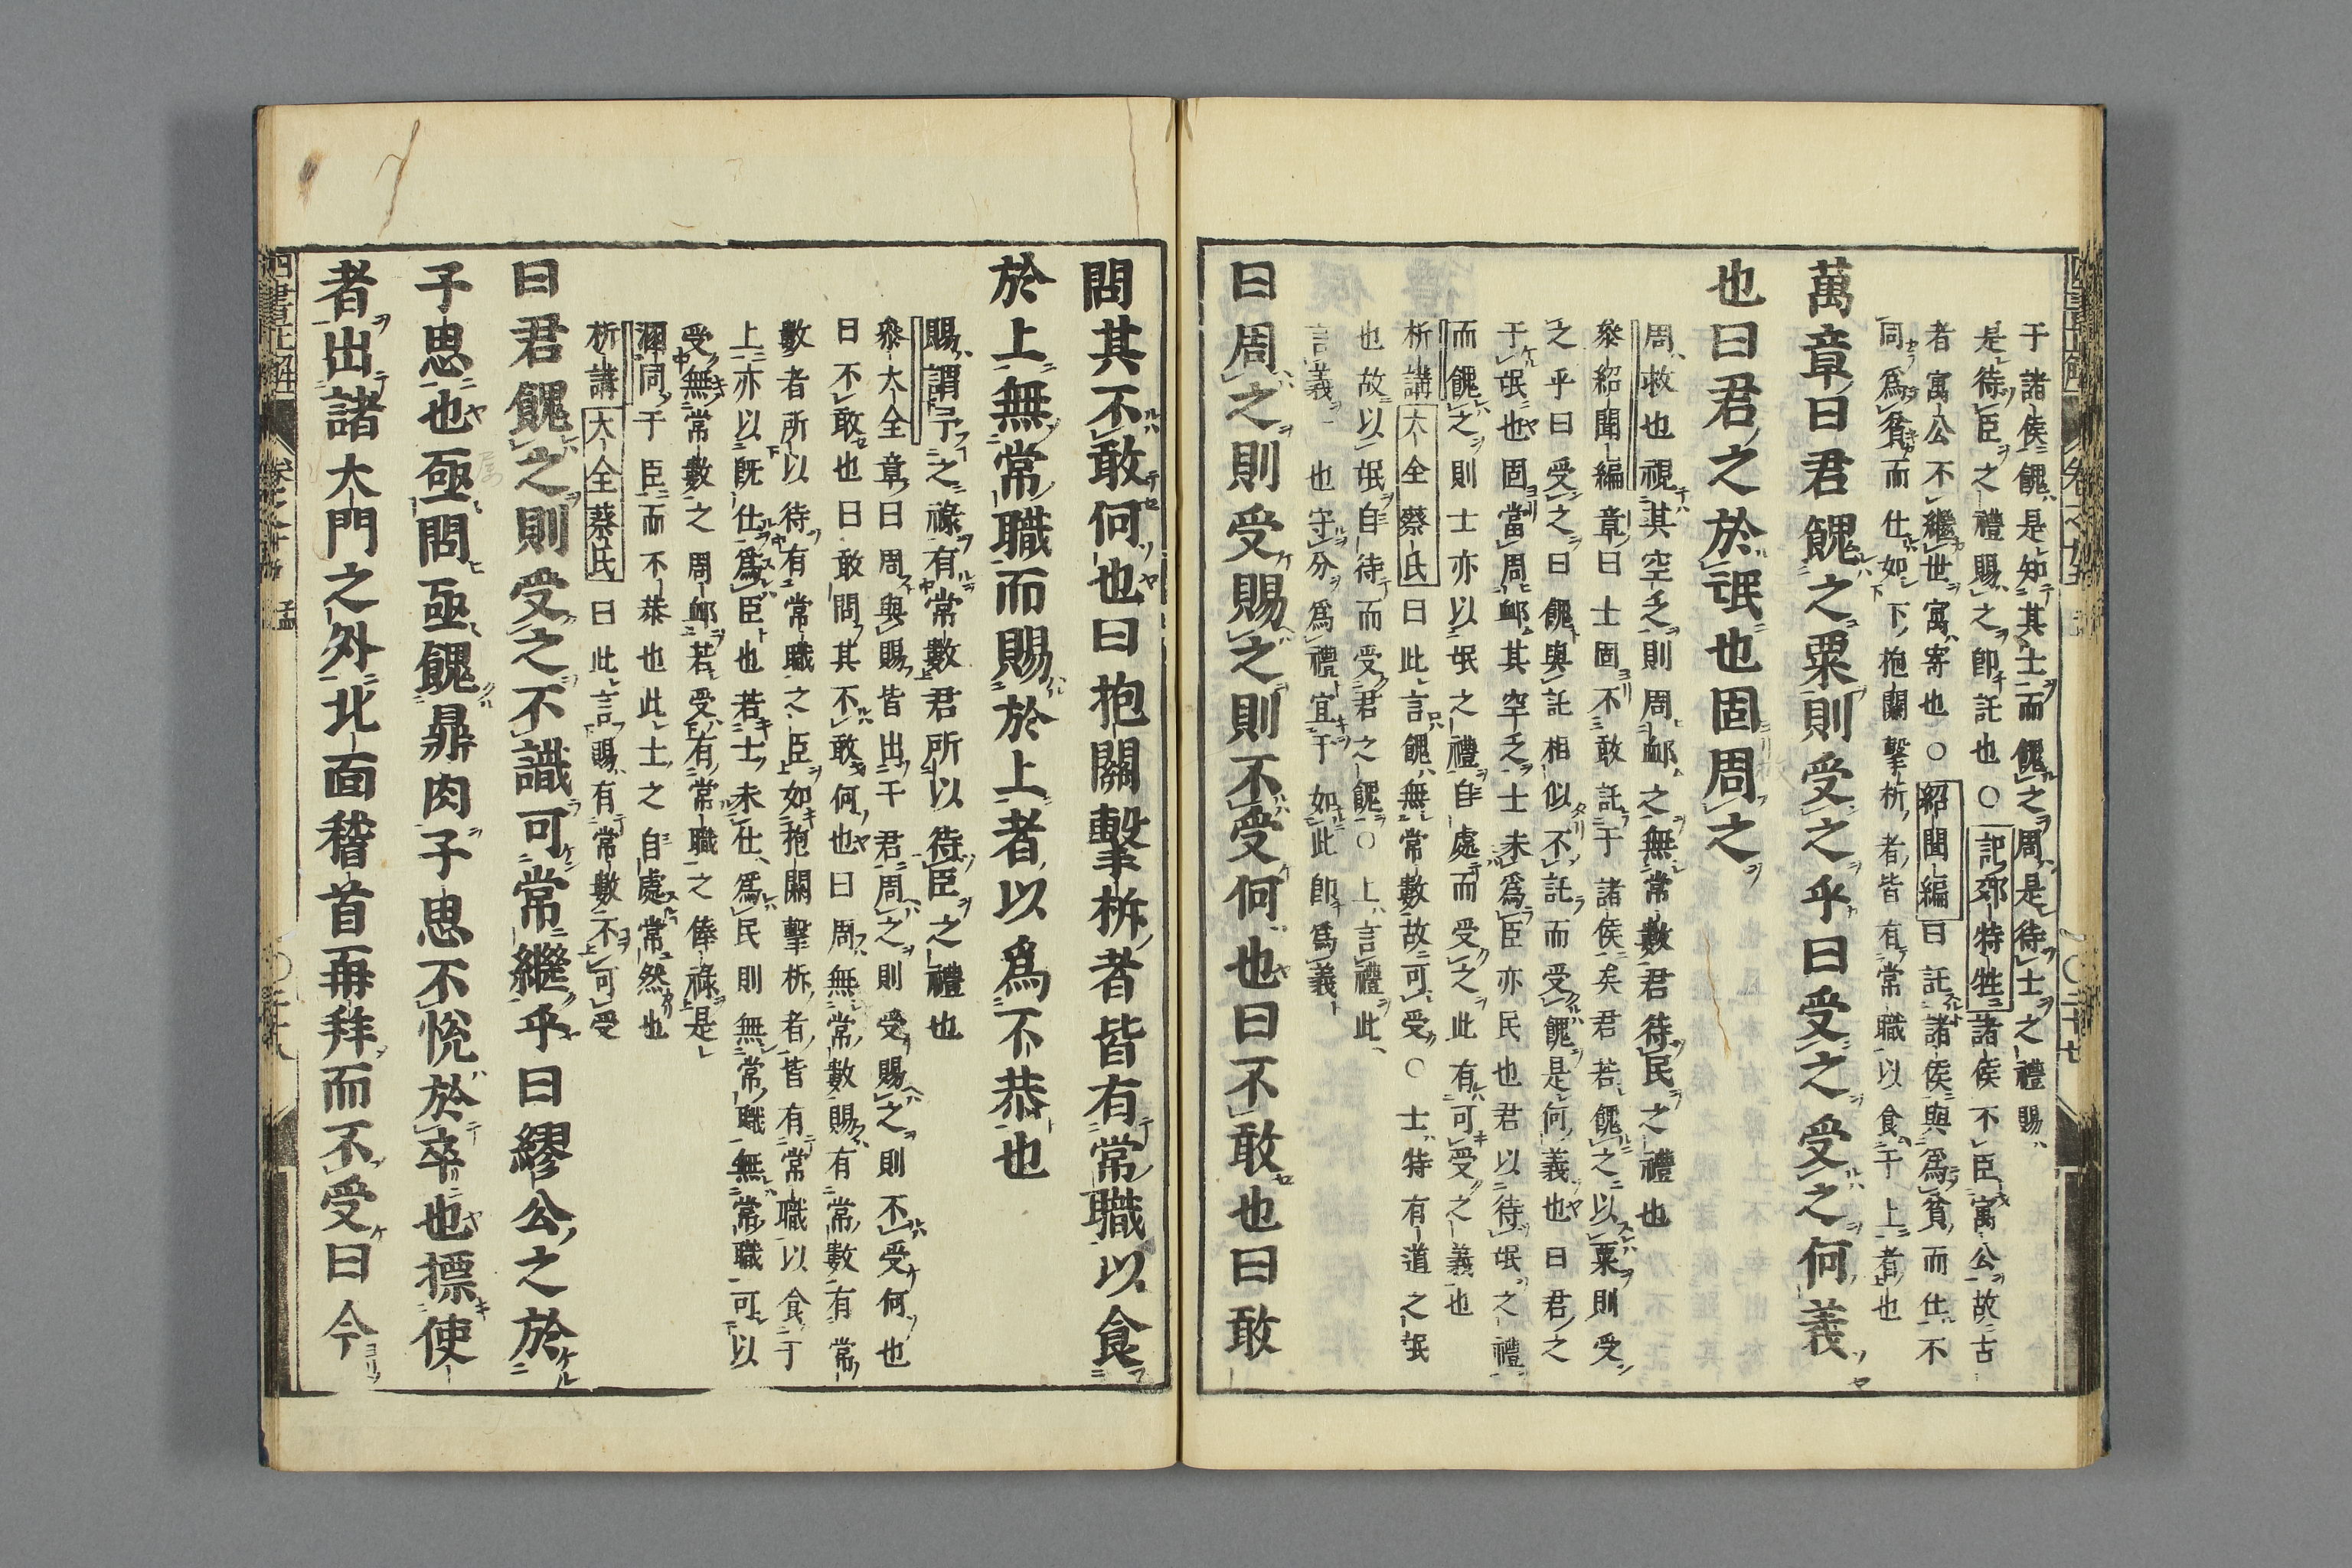 于諸侯餽是知其士而餽之周是待士之禮賜
是待臣之禮賜之卽託也○記郊特牲諸侯不臣寓公故古
者寓公不繼世寓寄也○紹聞編曰託諸侯與爲貧而仕不
同爲貧而仕如下抱關擊柝者皆有常職以食于上者也
萬章曰君餽之粟則受之乎曰受之受之何義
也曰君之於氓也固周之
周救也視其空乏則周䘏之無常數君待民之禮也
參紹聞編章曰士固不敢託于諸侯矣君若餽之以粟則受
之乎曰受之曰餽與託相似不託而受餽是何義也曰君之
于氓也固當周䘏其空乏士未爲臣亦民也君以待氓之禮
而餽之則士亦以氓之禮自處而受之此有可受之義也
析講大全蔡氏曰此言餽無常數故可受○士特有道之氓
也故以氓自待而受君之餽○上言禮此
言義一也守分爲禮宜于如此卽爲義
曰周之則受賜之則不受何也曰不敢也曰敢
問其不敢何也曰抱關擊柝者皆有常職以食
於上無常職而賜於上者以爲不恭也
賜謂予之祿有常數君所以待臣之禮也
參大全章曰周與賜皆出于君周之則受賜之則不受何也
曰不敢也曰敢問其不敢何也曰周無常數賜有常數有常
數者所以待有常職之臣如抱關擊柝者皆有常職以食于
上亦以既仕爲臣也若士未仕爲民則無常職無常職可以
受無常數之周䘏若受有常職之俸祿是
溷同于臣而不恭也此士之自處常然也
析講大全蔡氏曰此言賜有常數不可受
曰君餽之則受之不識可常繼乎曰繆公之於
子思也亟問亟餽鼎肉子思不悅於卒也摽使
者出諸大門之外北面稽首再拜而不受曰今